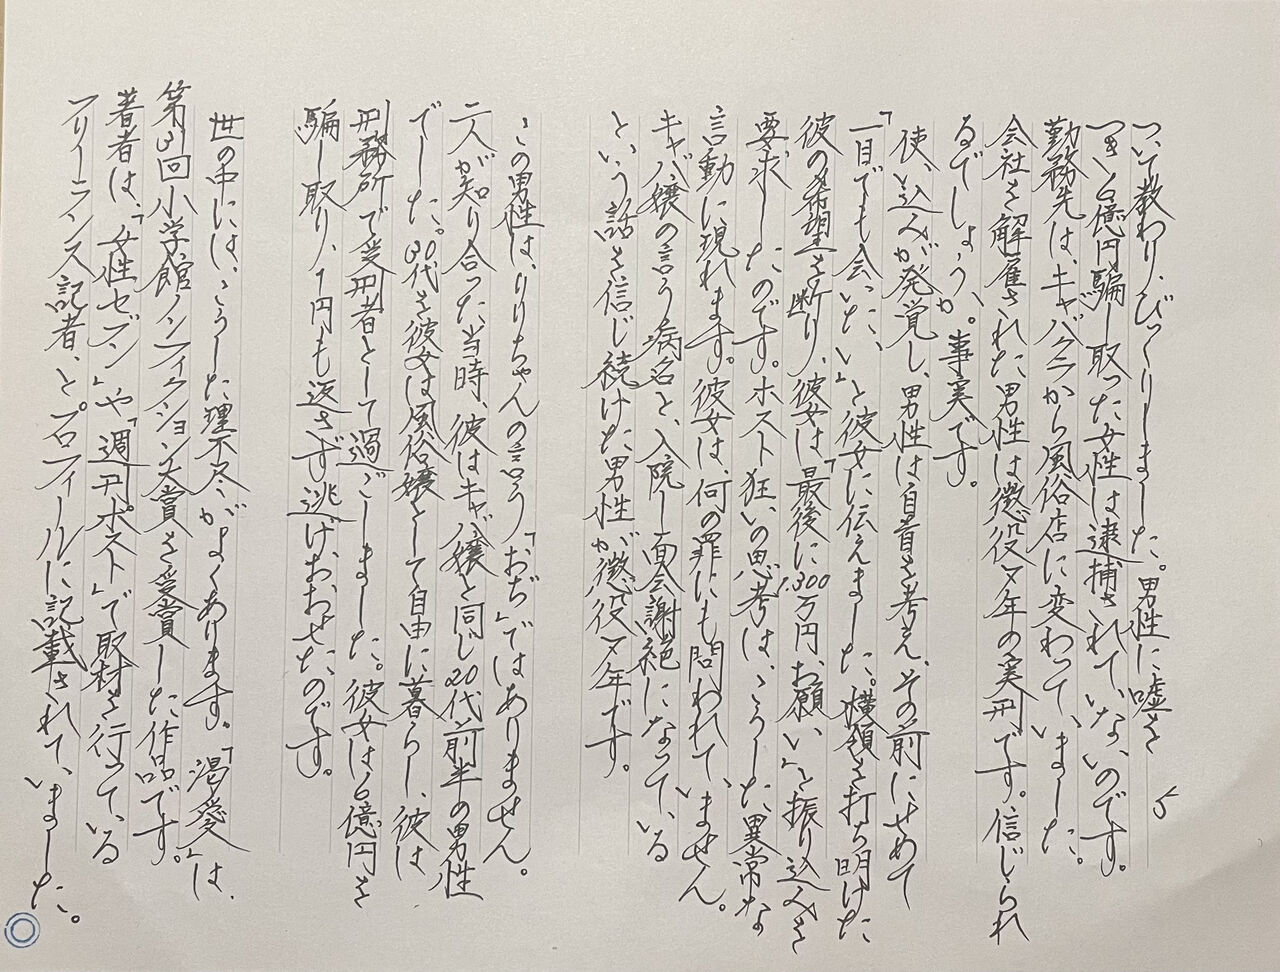 ついて教わり、びっくりしました。男性に嘘を
つき6億円騙し取った女性は逮捕されていないのです。
勤務先は、キャバクラから風俗店に変わっていました。
会社を解雇された男性は懲役7年の実刑です。信じられ
るでしょうか。事実です。
使い込みが発覚し、男性は自首を考え、その前にせめて
「一目でも会いたい」と彼女に伝えました。横領を打ち明けた
彼の希望を断り、彼女は「最後に1,300万円、お願い」と振り込みを
要求したのです。ホスト狂いの思考は、こうした異常な
言動に現れます。彼女は、何の罪にも問われていません。
キャバ嬢の言う病名と、入院し面会謝絶になっている
という話を信じ続けた男性が懲役7年です。
この男性は、りりちゃんの言う「おぢ」ではありません。
二人が知り合った当時、彼はキャバ嬢と同じ20代前半の男性
でした。30代を彼女は風俗嬢として自由に暮らし、彼は
刑務所で受刑者として過ごしました。彼女は6億円を
騙し取り、1円も返さず逃げおおせたのです。
世の中には、こうした理不尽がよくあります。「渇愛」は、
第31回小学館ノンフィクション大賞を受賞した作品です。
著者は、「女性セブン」や「週刊ポスト」で取材を行っている
フリーランス記者、とプロフィールに記載されていました。
5